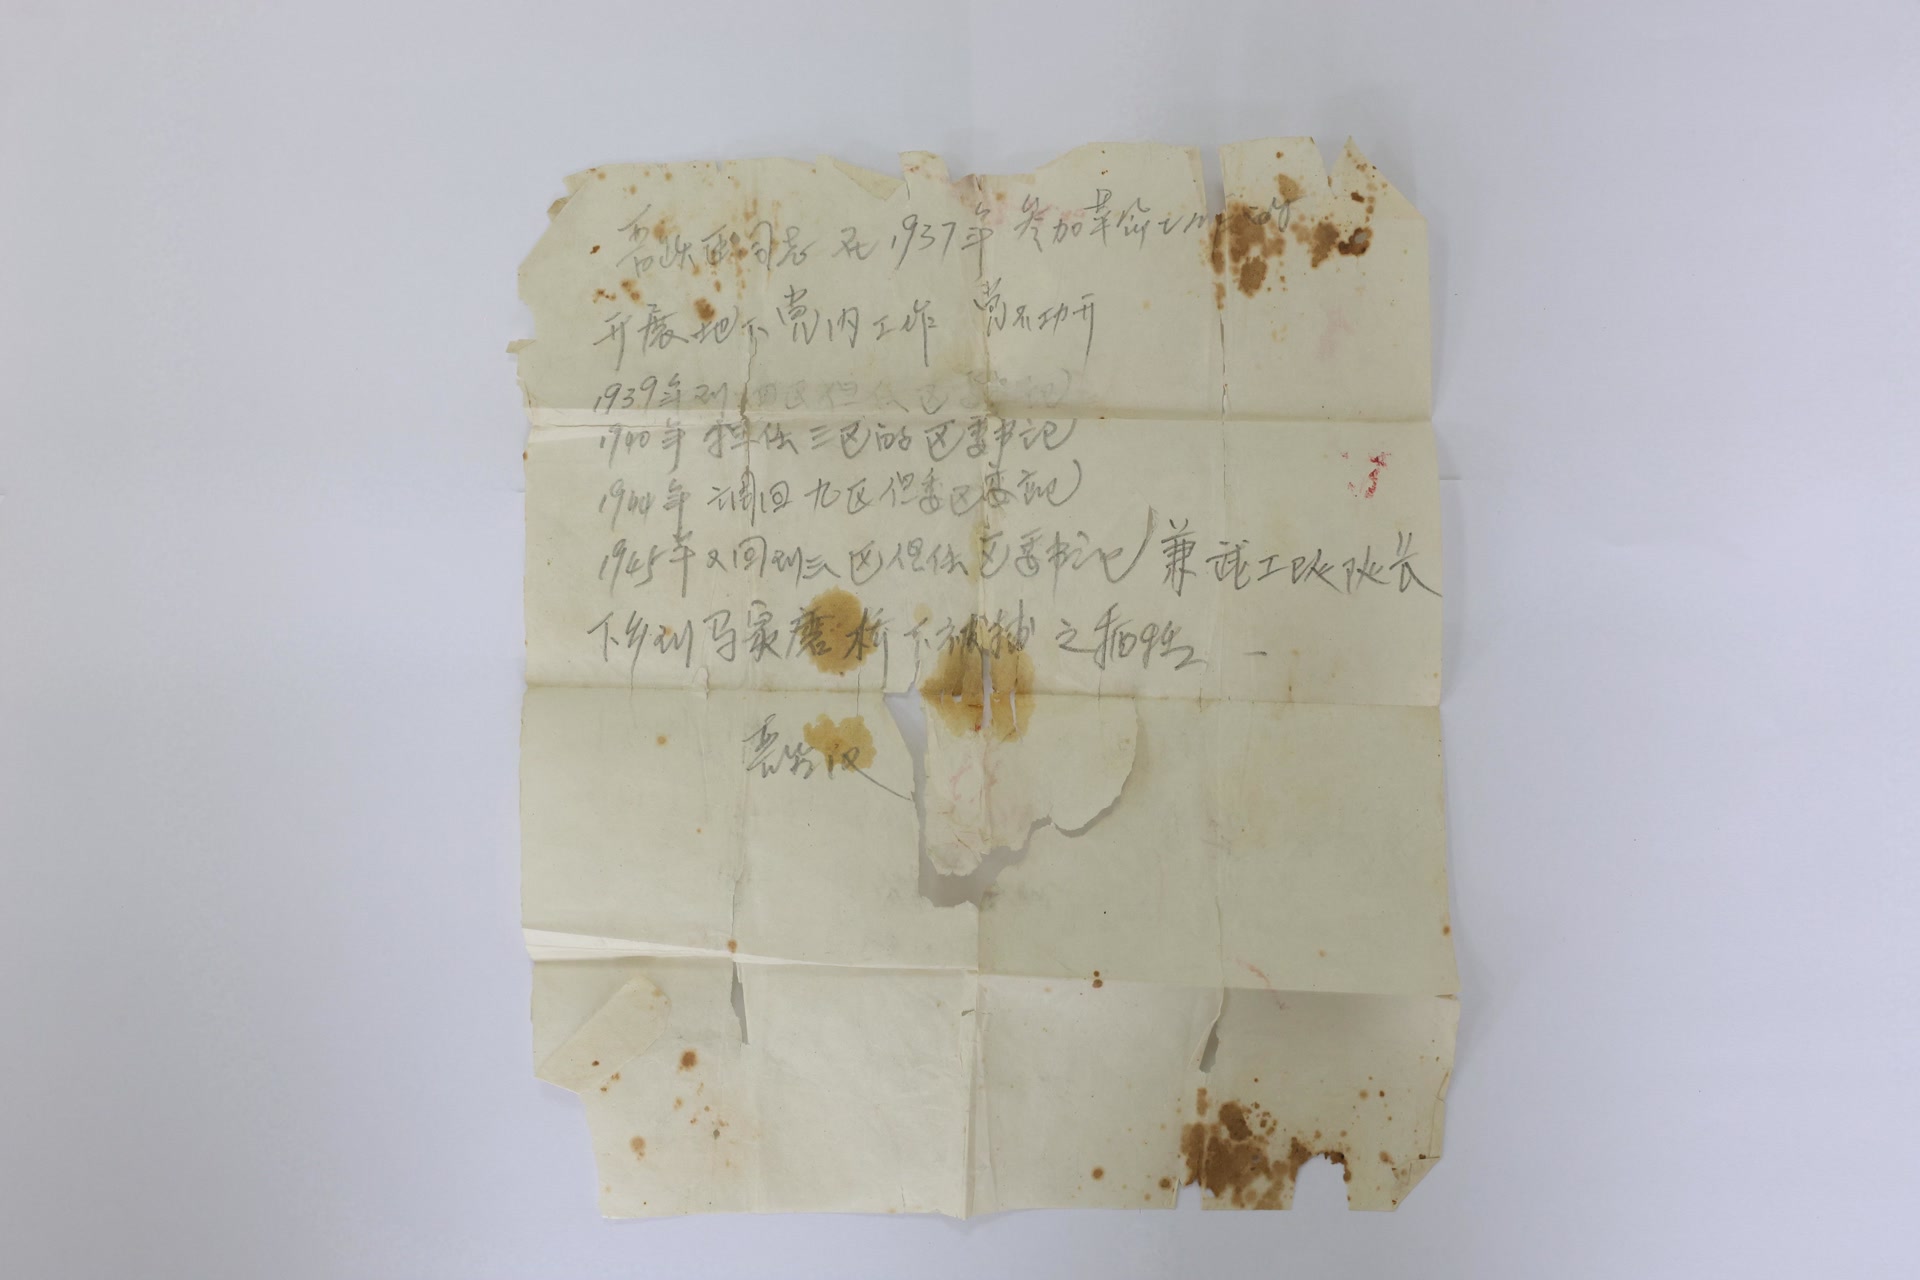 同志在1937年参加革命工作
开展地下党内工作 党不功开
1939年到四区但任区委书记
1940年担任三区的区委书记
1944年调回九区但委区委记
1945年又回到三区但任区委书记兼武工队队长
下乡到马家磨桥下被捕之牺牲